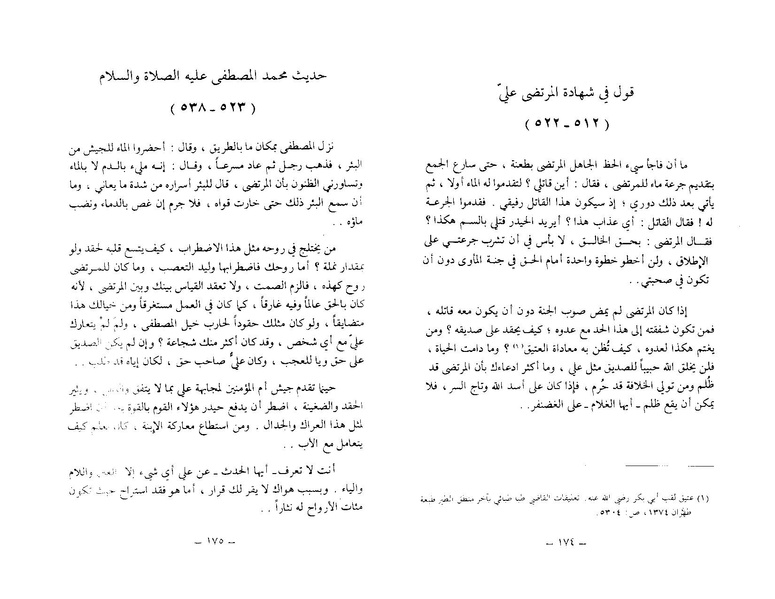 قول في شهادة المرتضى عليّ
( ٥١٢ ـ ٥٢٢ )
ما أن فاجأ سيء الحظ الجاهل المرتضى بطعنة ، حتى سارع الجمع
بتقديم جرعة ماء للمرتضى ، فقال : أين قاتلي ؟ لتقدموا له الماء أولا ، ثم
يأتي بعد ذلك دوري ؛ إذ سيكون هذا القاتل رفيقي . فقدموا الجرعة
له ! فقال القاتل : أي عذاب هذا ؟ أيريد الحيدر قتلي بالسم هكذا ؟
فقال المرتضى : بحق الخالق ، لا بأس في أن تشرب جرعتي على
الإطلاق ، ولن أخطو خطوة واحدة أمام الحق في جنة المأوى دون أن
تكون في صحبتي . .
إذا كان المرتضى لم يمض صوب الجنة دون أن يكون معه قاتله ،
فمن تكون شفقته إلى هذا الحد مع عدوه ؛ كيف يحقد على صديقه ؟ ومن
يغتم هكذا لعدوه ، كيف تُظن به معاداة العتيق (١) ؟ وما دامت الحياة ،
فلن يخلق الله حبيباً للصديق مثل علي ، وما أكثر ادعاءك بأن المرتضى قد
ظُلم ومن تولي الخلافة قد حُرم ، فإذا كان علي أسد الله وتاج السر ، فلا
يمكن أن يقع ظلم ـ أيها الغلام ـ على الغضنفر . .
(١) عتيق لقب أبي بكر رضي الله عنه. تعليقات القاضي طبا طبائي بآخر منطق الطير طبعة
طهران ١٣٧٤ ، ص : ٥٣٠٤.
ـ ١٧٤ ـ
حديث محمد المصطفى عليه الصلاة والسلام
( ٥٢٣ ـ ٥٣٨ )
نزل المصطفى بمكان ما بالطريق ، وقال : أحضروا الماء للجيش من
البئر ، فذهب رجل ثم عاد مسرعاً ، وقال : إنه مليء بالدم لا بالماء
وتساورني الظنون بأن المرتضى ، قال للبئر أسراره من شدة ما يعاني ، وما
أن سمع البئر ذلك حتى خارت قواه ، فلا جرم إن غص بالدماء ونضب
ماؤه . .
من يختلج في روحه مثل هذا الاضطراب ، كيف يتسع قلبه لحقد ولو
بمقدار نملة ؟ أما روحك فاضطرابها وليد التعصب ، وما كان للمرتضى
روح كهذه ، فالزم الصمت ، ولا تعقد القياس بينك وبين المرتضى ، لأنه
كان بالحق عالماً وفيه غارقاً ، كما كان في العمل مستغرقاً ومن خيالك هذا
متضايقاً ، ولو كان مثلك حقوداً لحارب خيل المصطفى ، ولم لمْ يتعارك
عليّ مع أي شخص ، وقد كان أكثر منك شجاعة ؟ وإن لم يكن الصديق
على حق ويا للعجب ، وكان عليٌّ صاحب حق ، لكان إياه قد طلب . .
حينما تقدم جيش أم المؤمنين لمجابهة علي بما لا يتفق ، ويثير
الحقد والضغينة ، اضطر أن يدفع حيدر هؤلاء القوم بالقوة اضطر
لمثل هذا العراك والجدال . ومن استطاع معاركة الإبنة ، كان يعلم كيف
يتعامل مع الأب . .
أنت لا تعرف ـ أيها الحدث ـ عن علي أي شيء إلا العين واللام
والياء . وبسبب هواك لا يقر لك قرار ، أما هو فقد استراح حيث تكون
مئات الأرواح له نثاراً . .
ـ ١٧٥ ـ